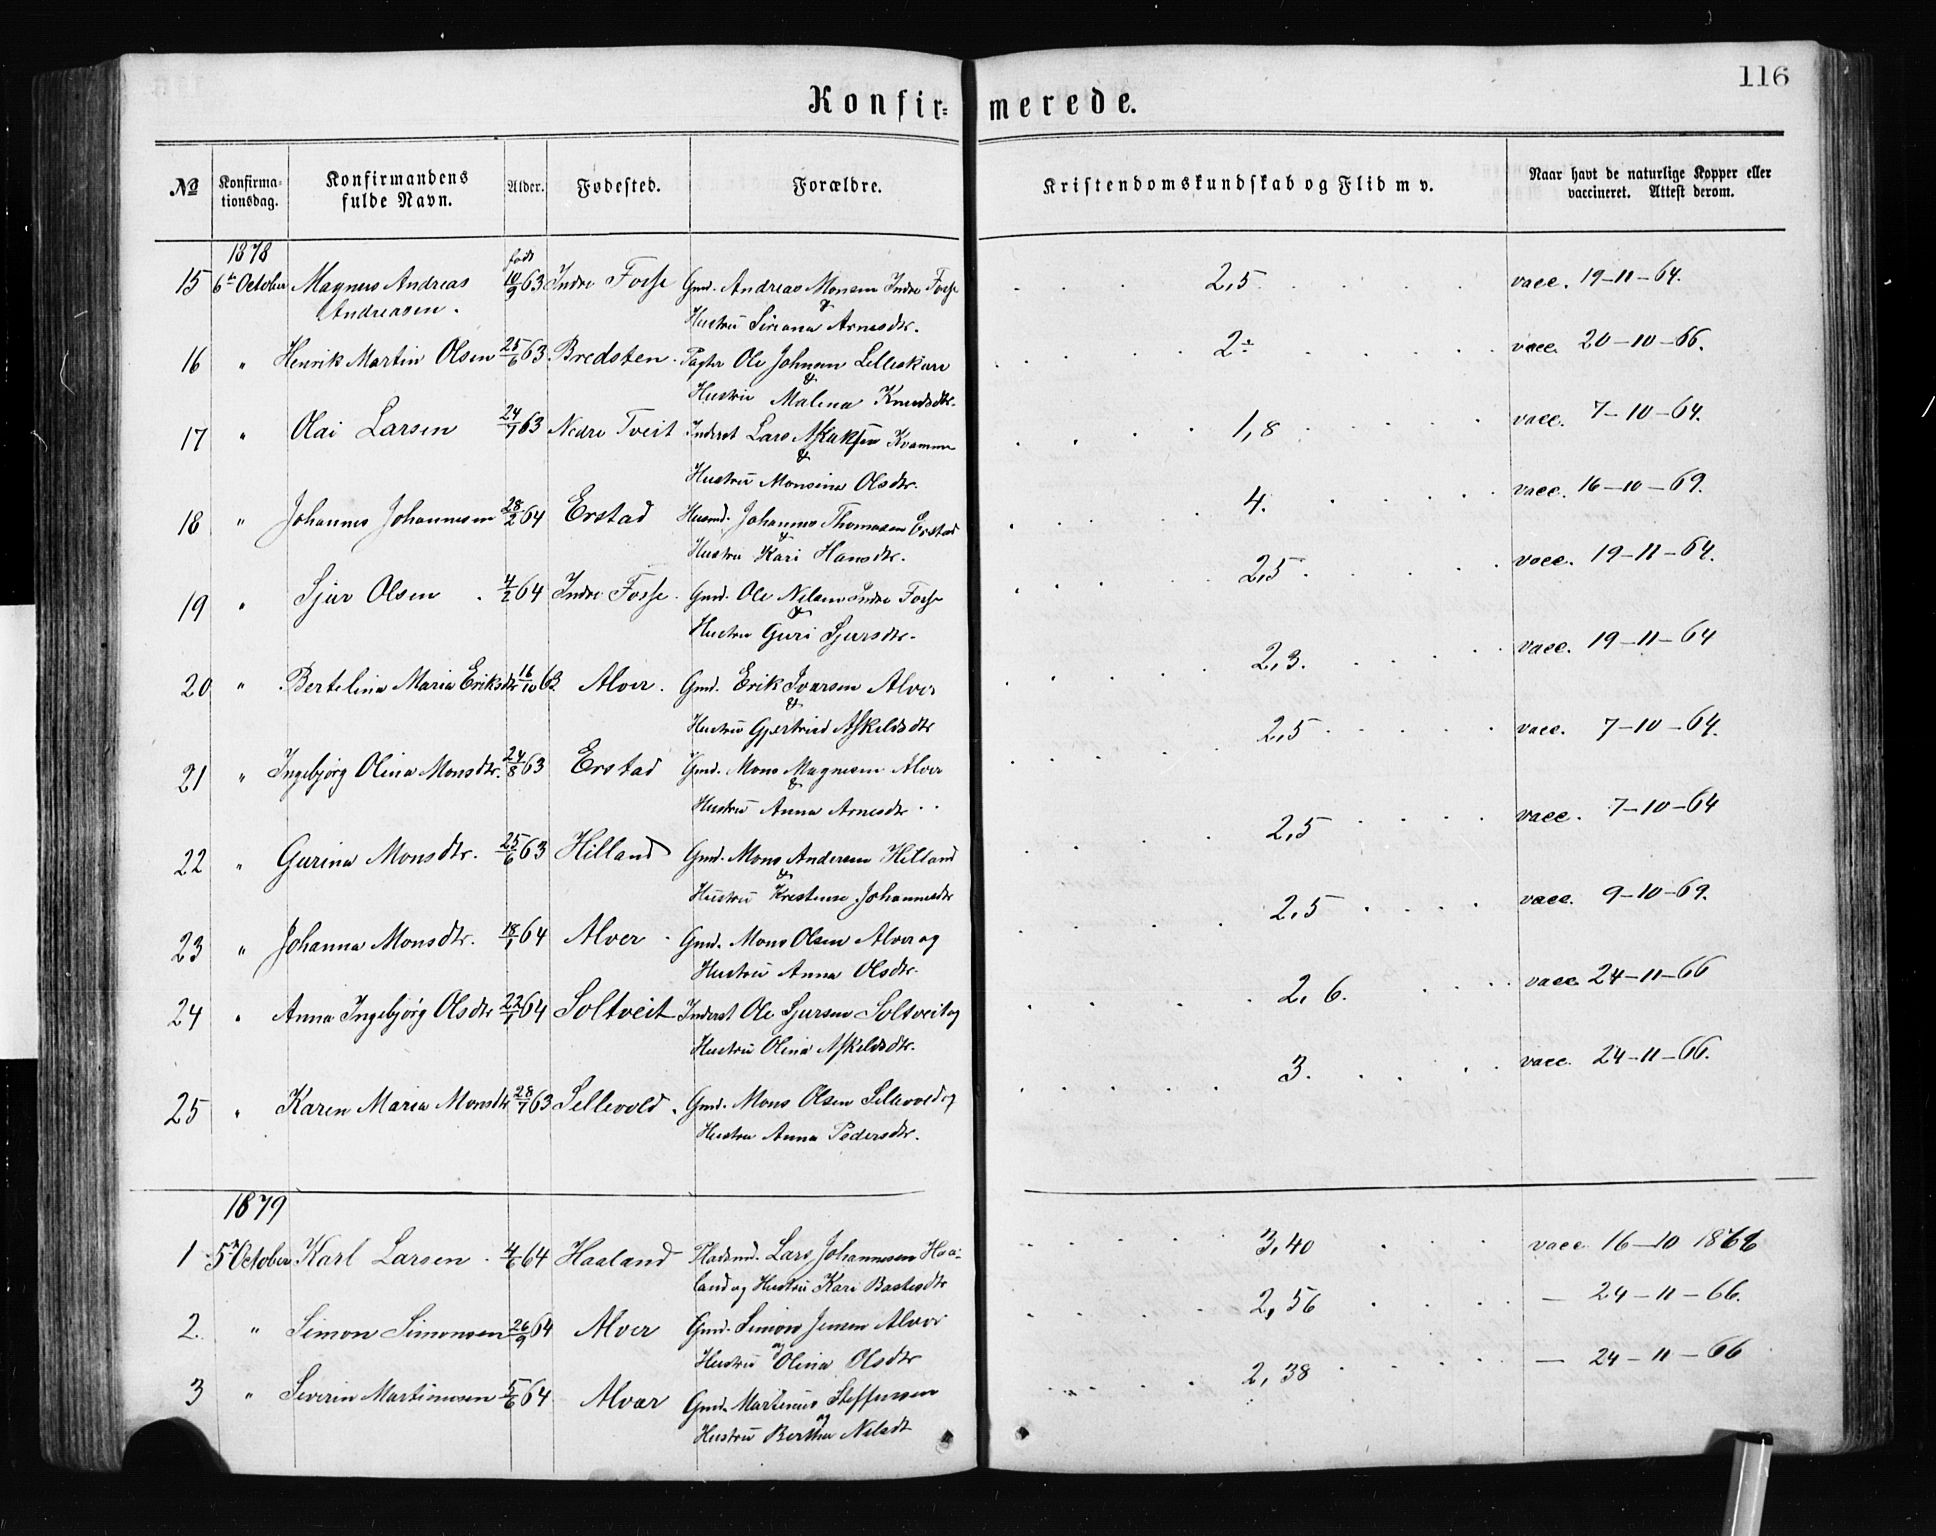 116
Konfir= merede.
No Konfirma= tionsdag. Konfirmandens fulde Navn. Alder. Fødested. Forældre. Kristendomskundskab og Flid m v. Naar havt de naturlige Kopper eller vaccineret. Attest derom.
1878 født
15 6te October Magnus Andreas 10/9 63 Indre Fosse Gmd. Andreas Monsen Indre Fosse 2,5 vacc. 19-11-64.
Andreasen. & Hustru Siriana Arnesdtr.
16 " Henrik Martin Olsen 25/6 63 Bredsten. Pagter Ole Johnsen Lilleskare 2÷ vacc. 20-10-66.
& Hustru Malena Knudsdtr.
17 " Olai Larsen 24/7 63 Nedre Tveit Inderst Lars Kvamme 1,8 vacc. 7-10-64.
& Hustru Monsine Olsdtr.
18 " Johannes Johannesen 28/2 64 Erstad Husmd. Johannes Thomasen Erstad 4. vacc. 16-10-69.
& Hustru Kari Hansdtr.
19 " Sjur Olsen 4/2 64 Indre Fosse. Gmd. Ole Nilsen Indre Fosse 2,5. vacc. 19-11-64.
& Hustru Guri Sjursdtr.
20 " Bertelina Maria Eriksdtr 16/10 63 Alver. Gmd. Erik Ivarsen Alver 2,3. vacc. 19-11-64
& Hustru Gjertrud Askeldsdtr
21 " Ingebjørg Olina Monsdtr. 24/8 63 Erstad Gmd. Mons Magnesen Alver 2,5 vacc. 7-10-64.
& Hustru Anna Arnesdtr
22 " Gurina Monsdtr. 25/6 63 Hilland Gmd. Mons Andersen Hilland 2,5 vacc. 7-10-64
& Hustru Kristense Johannesdtr
23 " Johanna Monsdtr. 18/1 64 Alver Gmd. Mons Olsen Alver og 2,5 vacc. 9-10-69.
Hustru Anna Olsdtr.
24 " Anna Ingebjørg Olsdtr 22/1 64 Soltveit Inderst Ole Sjursen Soltveit og 2,6. vacc. 24-11-66
Hustru Olina Askeldsdtr.
25 " Karen Maria Monsdtr 28/7 63 Sellevold. Gmd. Mons Olsen Sellevold og 3. vacc. 24-11-66.
Hustru Anna Pedersdtr.
1879
1 5te October Karl Larsen 4/6 64 Haaland Pladsmd. Lars Johannesen Haa- 3,40 vacc 16-10 1866
land og Hustru Kari Bastesdtr
2. " Simon Simonsen 26/9 64 Alver Gmd. Simon Jensen Alver 2,56 — 24-11-66.
og Hustru Olina Olsdtr
3 " Severin Martinusen 5/6 64 Alver Gmd. Martinus Steffensen 2,38 — 24-11-66
og Hustru Bertha Nilsdt